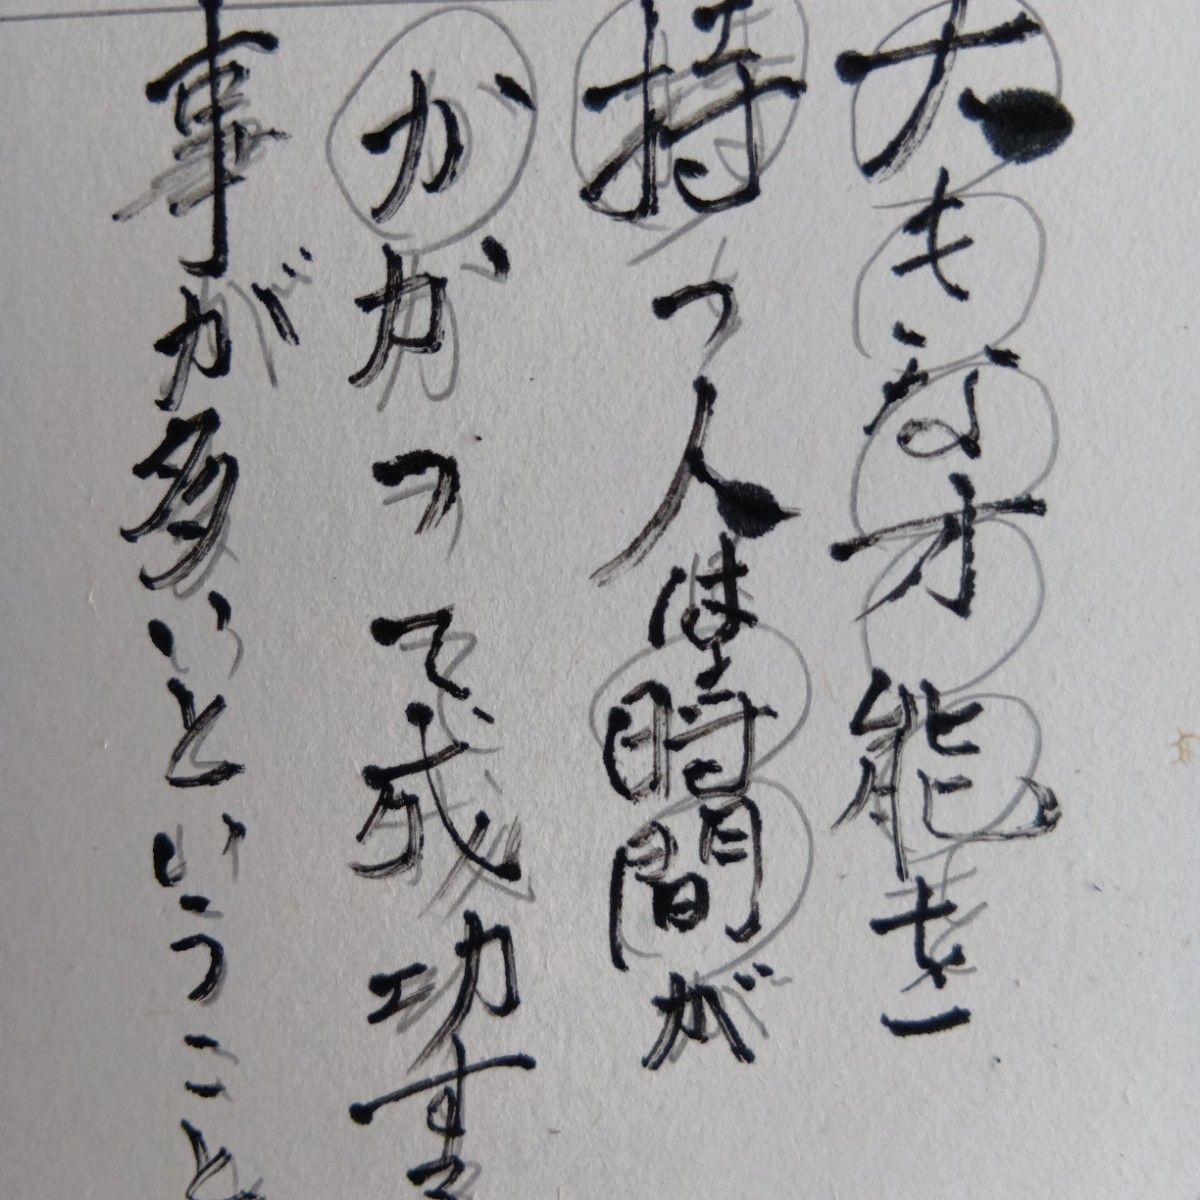 大もな才能を
持つ人は時間が
かかって成功する
事が多いということ